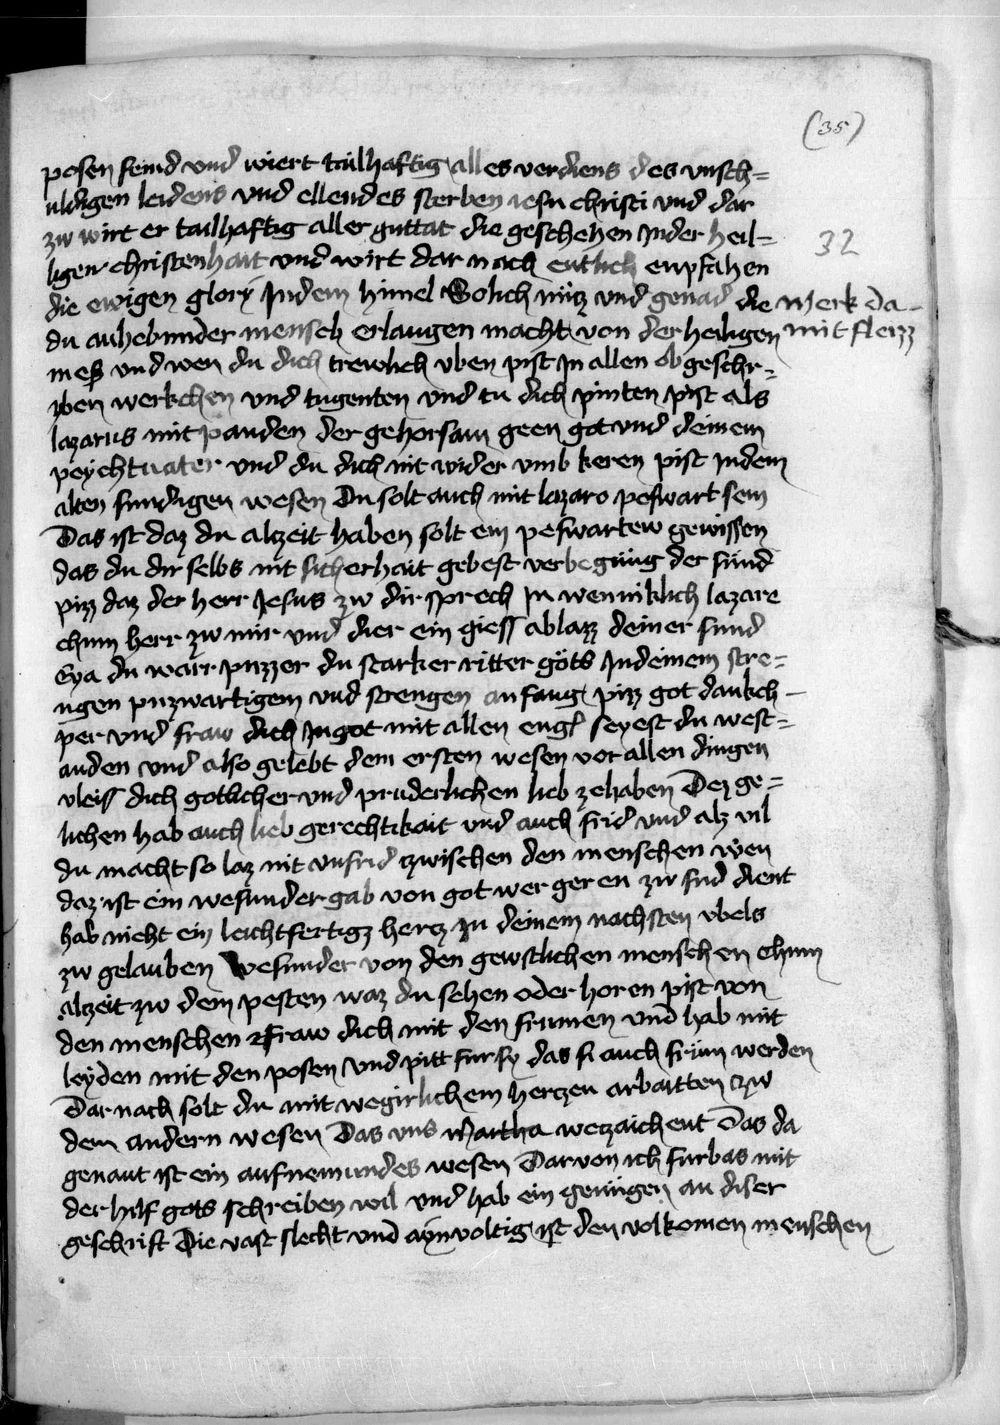 (35)
posen feind und wiert tailhaftig alles verdiens des vnsch=
uldigen leidens vnd ellendes sterben iesu christi vnd dar
zw wirt er tailhaftig aller guttat die geschehen Jnder heil=
32
ligen christenhait vnd wirt dar nach entlich enpfahen
die ewigen glory Jndem himel Solich nücz vnd genad die
merk da-
mit fleizz
du anhebunder mensch erlangen macht von der heiligen
mess vnd wen du dich trewlich vben pist Jn allen obgeschr=
iben werkchen vnd tugenten vnd tu dich pinten pist als
lazarus mit panden der gehorsam geen got vnd deinem
peychtuater vnd du dich nit wider vmb keren pist Jndem
alten sundigen wesen Du solt auch mit lazaro peswart sein
Das ist daz du alzeit haben solt ein peswartew gewissen
das du dir selbs nit sicherhait gebest verbegüng der sünd
pizz daz der herr Jesus zw dir sprech Jn wenniklich lazare
chum herr zw mir vnd dier ein giess ablazz deiner sund
Eya du warr puzzer du starker ritter göts Jndeinem stre=
ngen puzwartigem vnd strengen anfang pizz got dankch-
per vnd fraw dich Jngot mit allen engl seyest du west=
anden vnd also gelebt dem ersten wesen vor allen dingen
vleiss dich gotlicher vnd pruderlichen lieb zehaben Dez ge=
lichen hab auch lieb gerechtikait vnd auch frid vnd alz vil
du macht so laz nit vnfrid zwischen den menschen wen
daz ist ein wesunder gab von got wer geren zw frid dient
hab nicht ein leichtfertigz hercz zu deinem nachsten vbels
zw gelauben Wesunder von den geistlichen menschen chum
alzeit zw dem pesten waz du sehen oder horen pist von
den menschen fraw dich mit den frumen vnd hab mit
leyden mit den posen vnd pitt fur sy das si auch frum werden
Dar nach solt du mit wegirlichem herczen arbaitten zw
dem andern wesen Das vns Martha weczaichent Das da
genant ist ein aufnemundes wesen Darvon ich furbas mit
der hilf gots schreiben wil vnd hab ein genügen an diser
geschrift Die vast slecht vnd aynvoltig ist den volkomen menschen